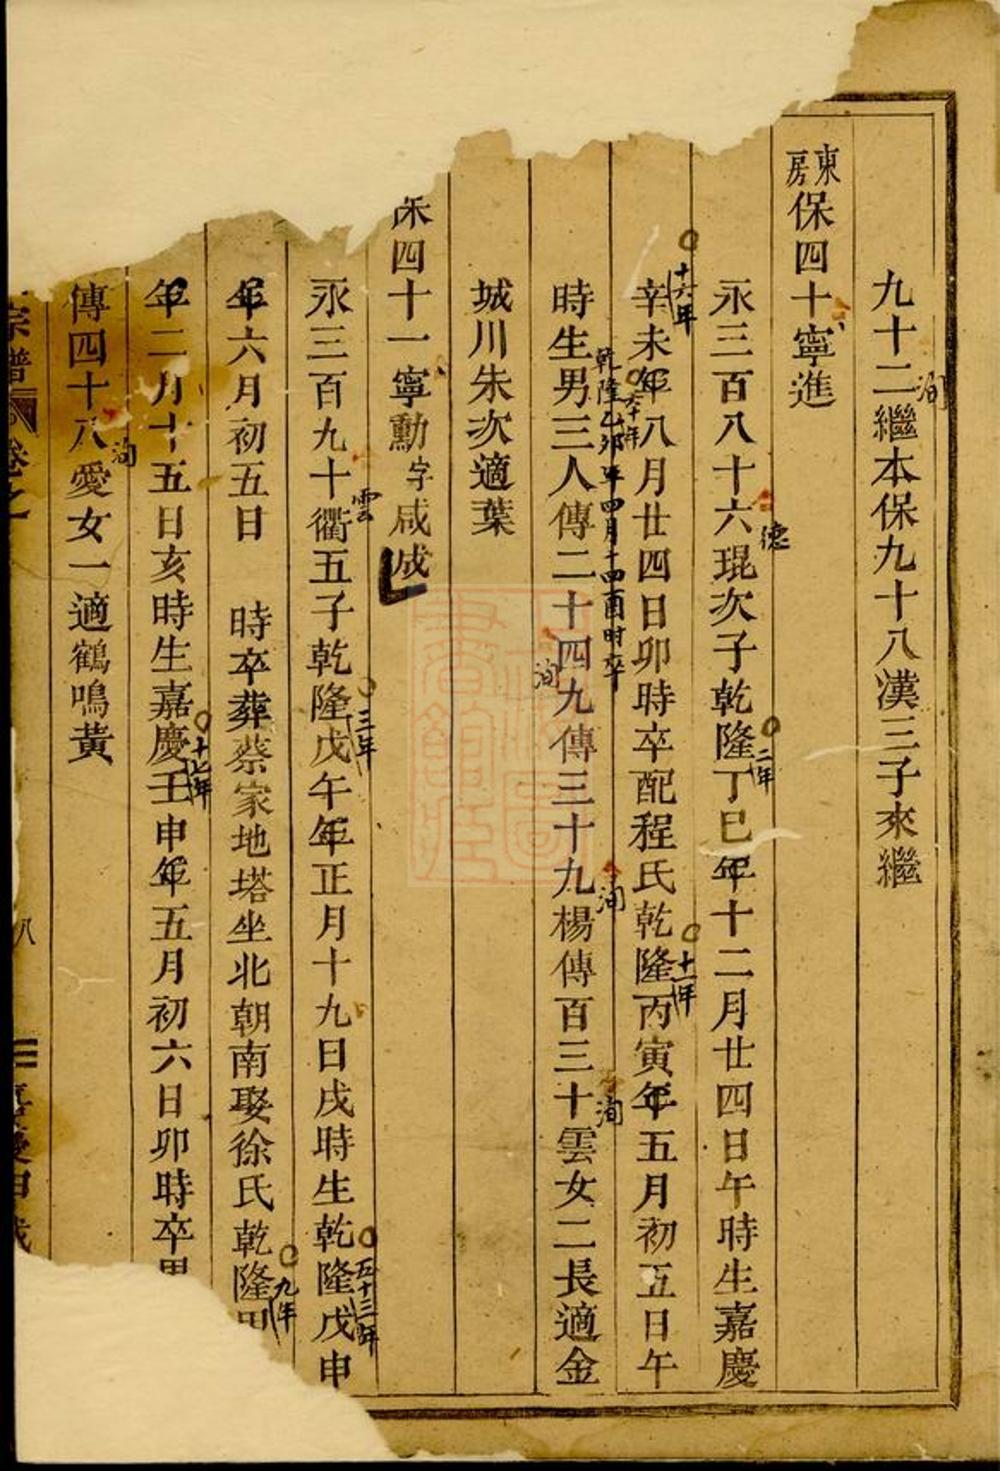 九十二繼本保九十八漢三子來繼
洵
東房保四十寧進
永三百八十六琨次子乾隆丁巳年十二月廿四日午時生嘉慶
德
二年
辛未年八月廿四日卯時卒配程氏乾隆丙寅年五月初五日午
十六年
六十年
十一年
時生男三人傳二十四九傳三十九楊傳百三十雲女二長適金
乾隆乙卯年四月十四酉時卒
洵
洵
洵
城川朱次適葉
保四十一寧勳字咸成
永三百九十衢五子乾隆戊午年正月十九日戌時生乾隆戊申
雲
三年
五十三年
年六月初五日 時卒葬蔡家地塔坐北朝南娶徐氏乾隆甲
九年
年二月十五日亥時生嘉慶壬申年五月初六日卯時卒男
十七年
傳四十八愛女一適鶴鳴黃
洵
宗譜 卷之
八